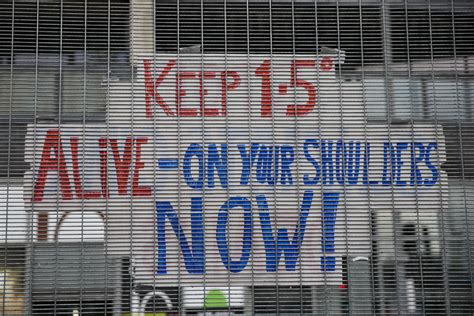 KEEP 1·5°
ALiVE – ON YOUR SHOULDERS
NOW!